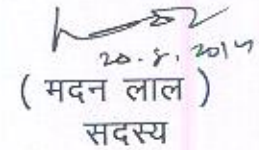 20.8.2015
( मदन लाल )
सदस्य